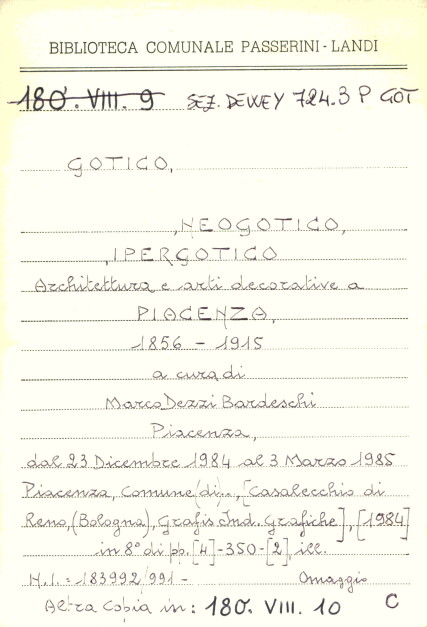 BIBLIOTECA COMUNALE PASSERINI - LANDI
180. VIII. 9 SEZ. DEWEY 724.3 P GOT
GOTICO,
,NEOGOTICO,
,IPERGOTICO
Architettura e arti decorative a
PIACENZA,
1856 - 1915
a cura di
Marco Dezzi Bardeschi
Piacenza,
dal 23 Dicembre 1984 al 3 Marzo 1985
Piacenza, Comune (di)..., [Casalecchio di
Reno, (Bologna), Grafis Ind. Grafiche], [1984]
in 8° di pp. [4]-350-[2], ill.
N.I. = 183992/991 - Omaggio
Altra Copia in: 180. VIII. 10 C